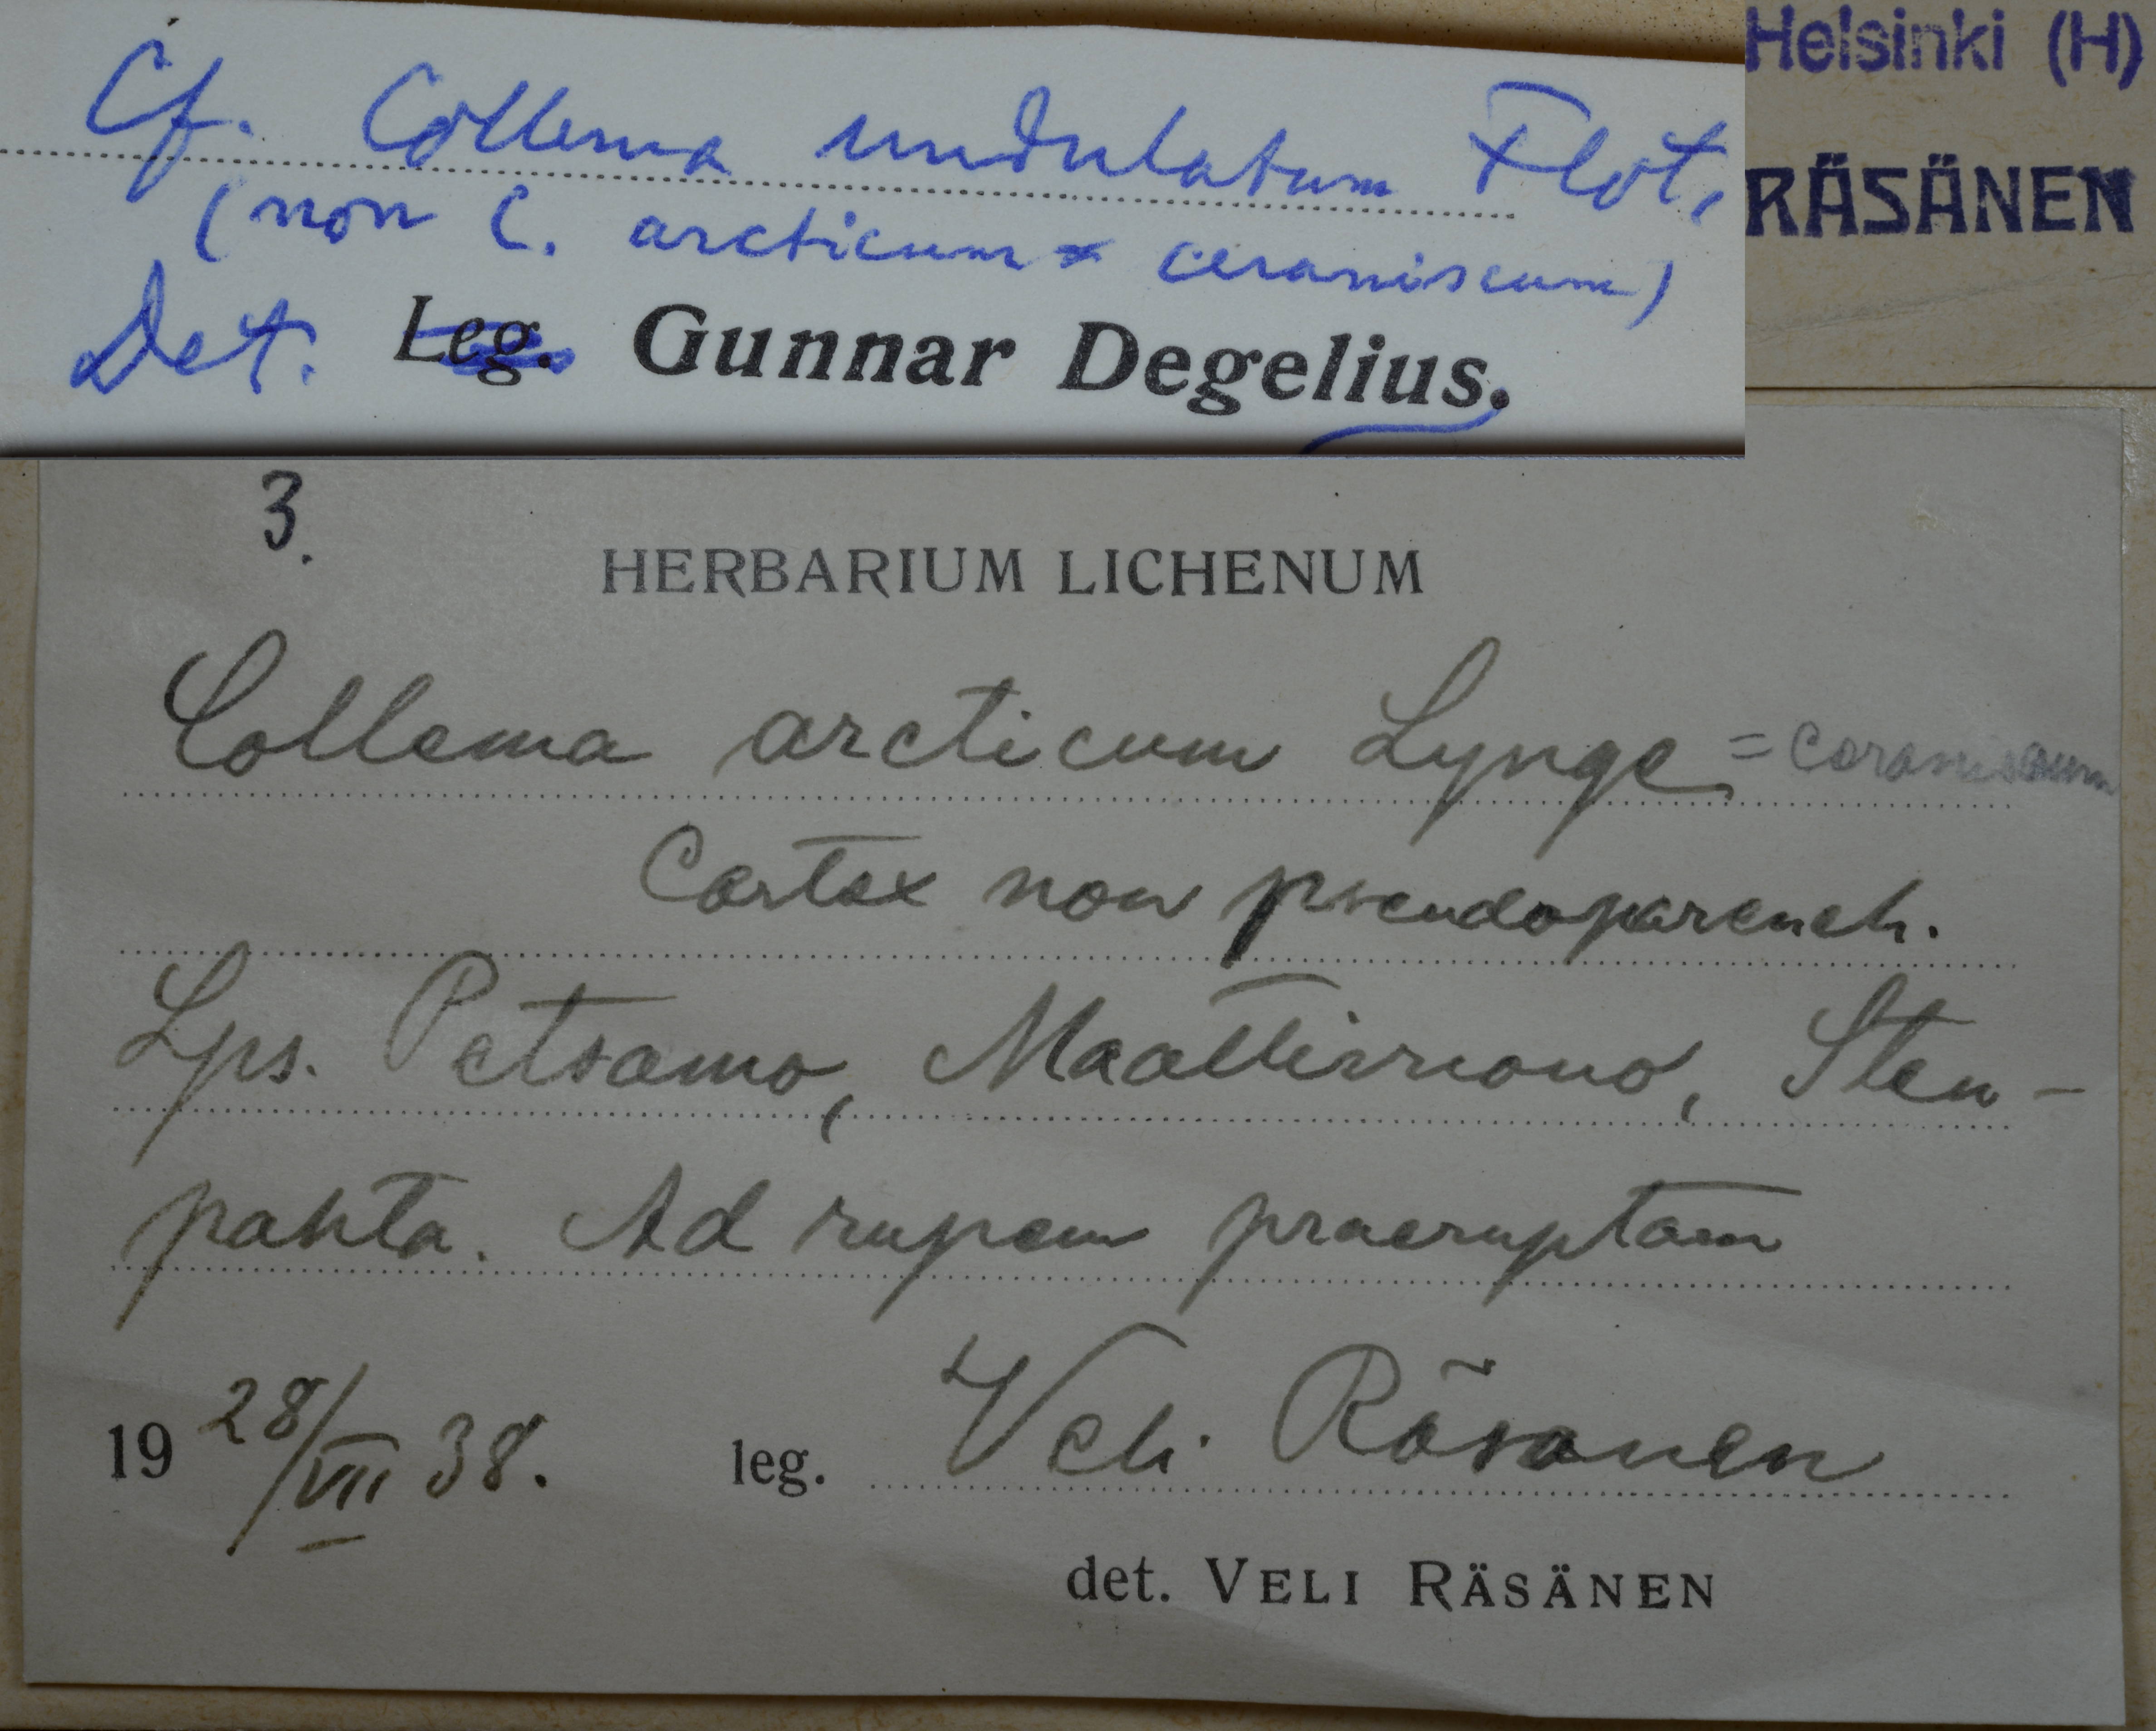 Cf. Collema undulatum Flot.
(non C. arcticum = ceraniscum)
Det. Leg. Gunnar Degelius.
Helsinki (H)
RÄSÄNEN
3.
HERBARIUM LICHENUM
Collema arcticum Lynge = ceraniscum
Cortex non pseudoparench.
Lps. Petsamo, Maattivuono, Sten-
pahta. Ad rupem praeruptam
19 28/VII 38. leg. Veli Räsänen
det. VELI RÄSÄNEN